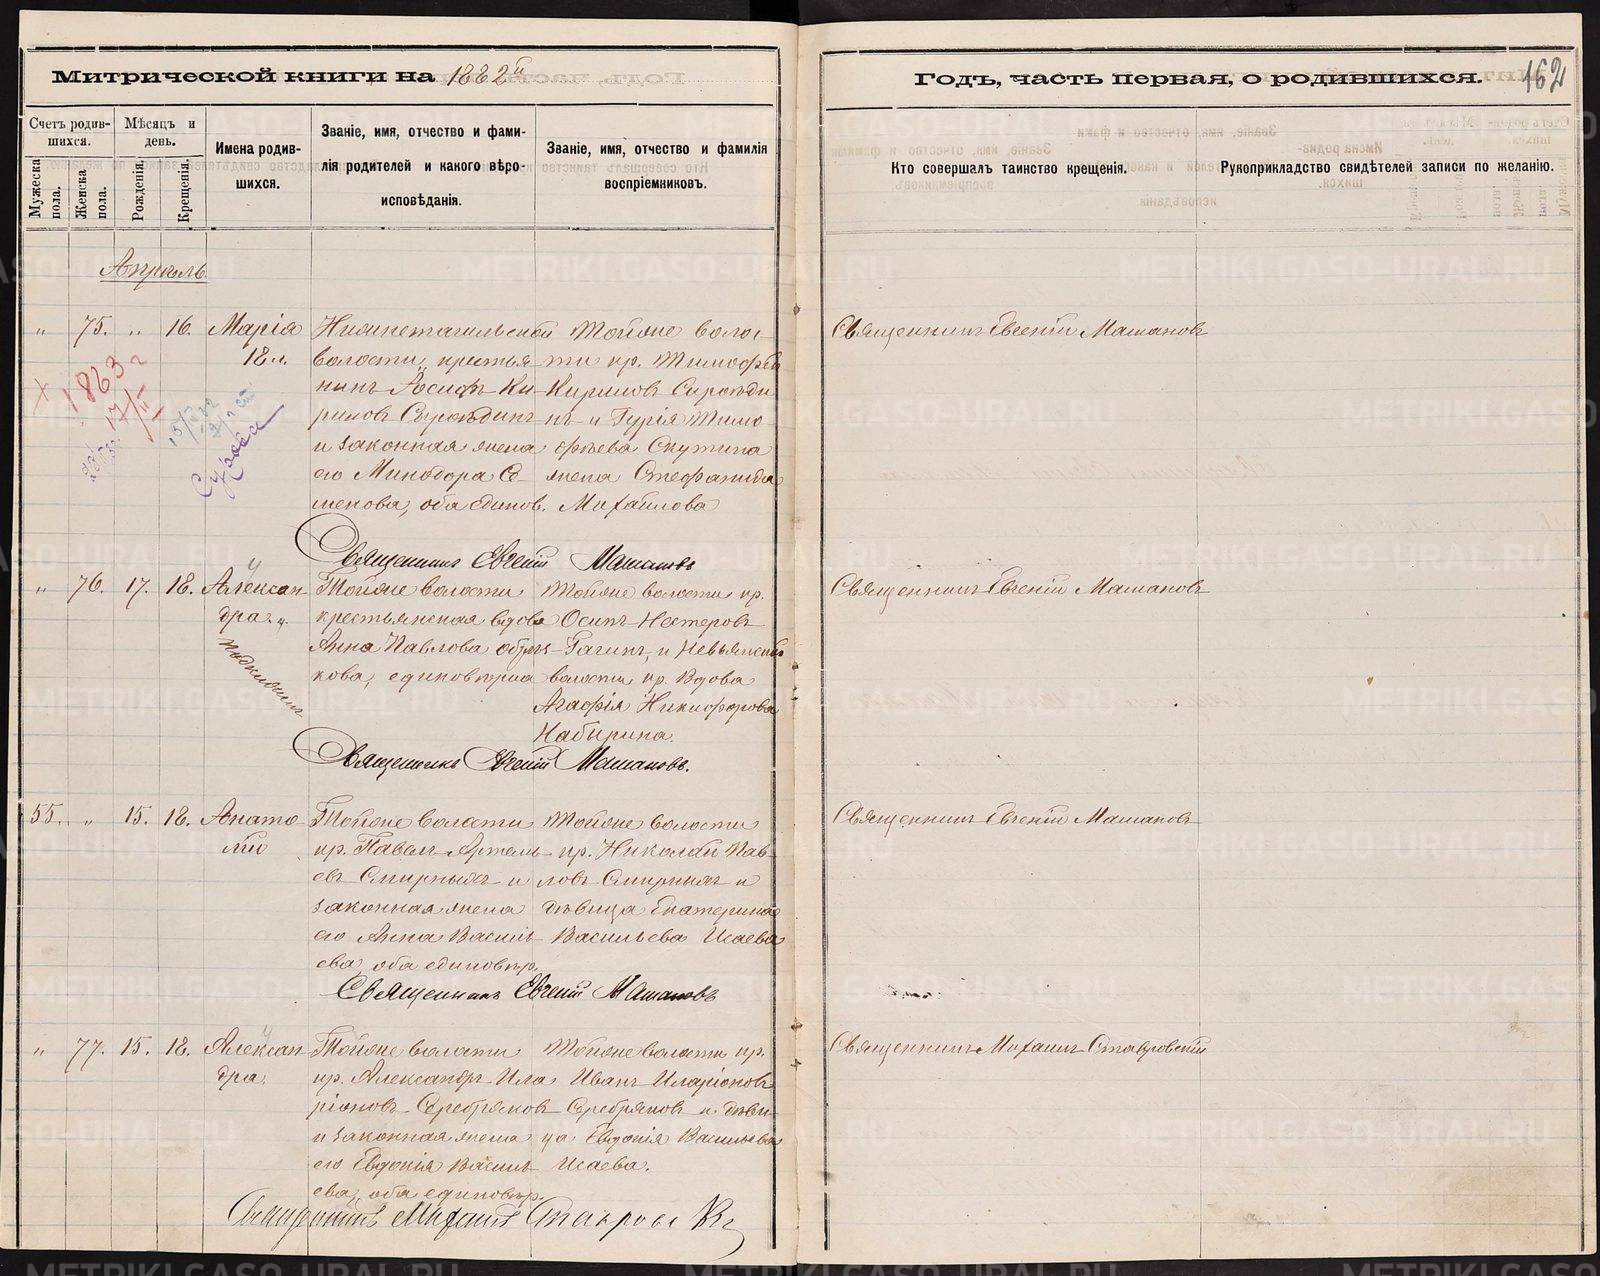 Митрической книги на 1882й
Годъ, часть первая, о родившихся.
162
Счетъ родив-
шихся.
Мужеска
пола.
Женска
пола.
Мѣсяцъ и
день.
Рожденія.
Крещенія.
Имена родив-
шихся.
Званіе, имя, отчество и фами-
лія родителей и какого вѣро-
исповѣданія.
Званіе, имя, отчество и фамилія
воспріемниковъ.
Кто совершалъ таинство крещенія.
Рукоприкладство свидѣтелей записи по желанію.
Апрѣль
" 75. " 16. Марія
18 л.
1863 г
17/II
Нижнетагильской
волости, крестья-
нинъ Іосифъ Ки-
риловъ Сыроѣдинъ
и законная жена
его Минодора Се-
менова, оба единов.
Тойже волос-
ти кр. Тимофѣй
Кириловъ Сыроѣди
нъ и Гурія Тимо
фѣева Скутина
жена Стефанида
Михайлова
Священникъ Евгеній Машановъ
Священникъ Евгеній Машановъ
" 76. 17. 18. Алексан
дра.
подкидышъ
Тойже волости
крестьянская вдова
Анна Павлова
кова, единовѣрца
Тойже волости кр.
Осипъ Нестеровъ
Гагинъ, и Невьянской
волости кр. вдова
Агафія Никифорова
Набирина.
Священникъ Евгеній Машановъ
Священникъ Евгеній Машановъ.
55. " 15. 18. Анато
лій
Тойже волости
кр. Павелъ Артемь-
евъ Смирныхъ и
законная жена
его Анна Василь-
ева, оба единовѣр.
Тойже волости
кр. Николай Пав-
ловъ Смирныхъ и
дѣвица Екатерина
Васильева Исаева
Священникъ Евгеній Машановъ
Священникъ Евгеній Машановъ
" 77. 15. 18. Алексан
дра.
Тойже волости
кр. Александръ Ила
ріоновъ Серебряковъ
и законная жена
его Евдокія Василь-
ева, оба единовѣр.
Тойже волости кр.
Иванъ Иларіоновъ
Серебряковъ и дѣви-
ца Евдокія Васильева
Исаева.
Священникъ Михаилъ Ставровскій
Священникъ Михаилъ Ставровскій
METRIKI.GASO-URAL.RU